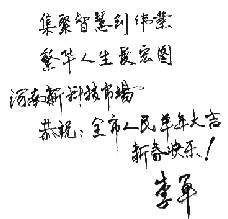 集聚智慧创伟业
繁华人生展宏图
河南新科技市场
恭祝：全市人民羊年大吉
新春快乐！
李军